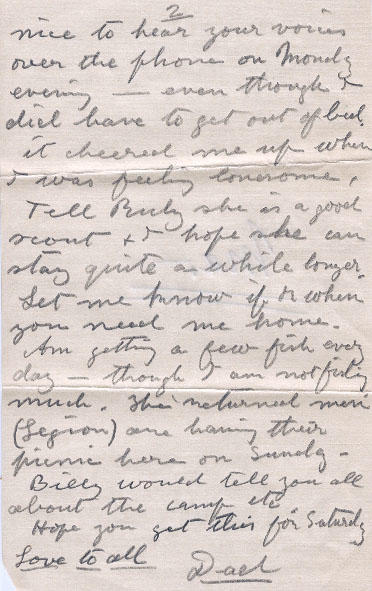 2
nice to hear your voices
over the phone on Monday
evening — even though I
did have to get out of bed.
it cheered me up when
I was feeling lonesome.
Tell Ruby she is a good
scout & I hope she can
stay quite a while longer.
Let me know if or when
you need me home.
Am getting a few fish every
day — though I am not fishing
much. The returned men
(Legion) are having their
picnic here on Sunday -
Billy would tell you all
about the camp etc
Hope you get this for Saturday
Love to all
Dad